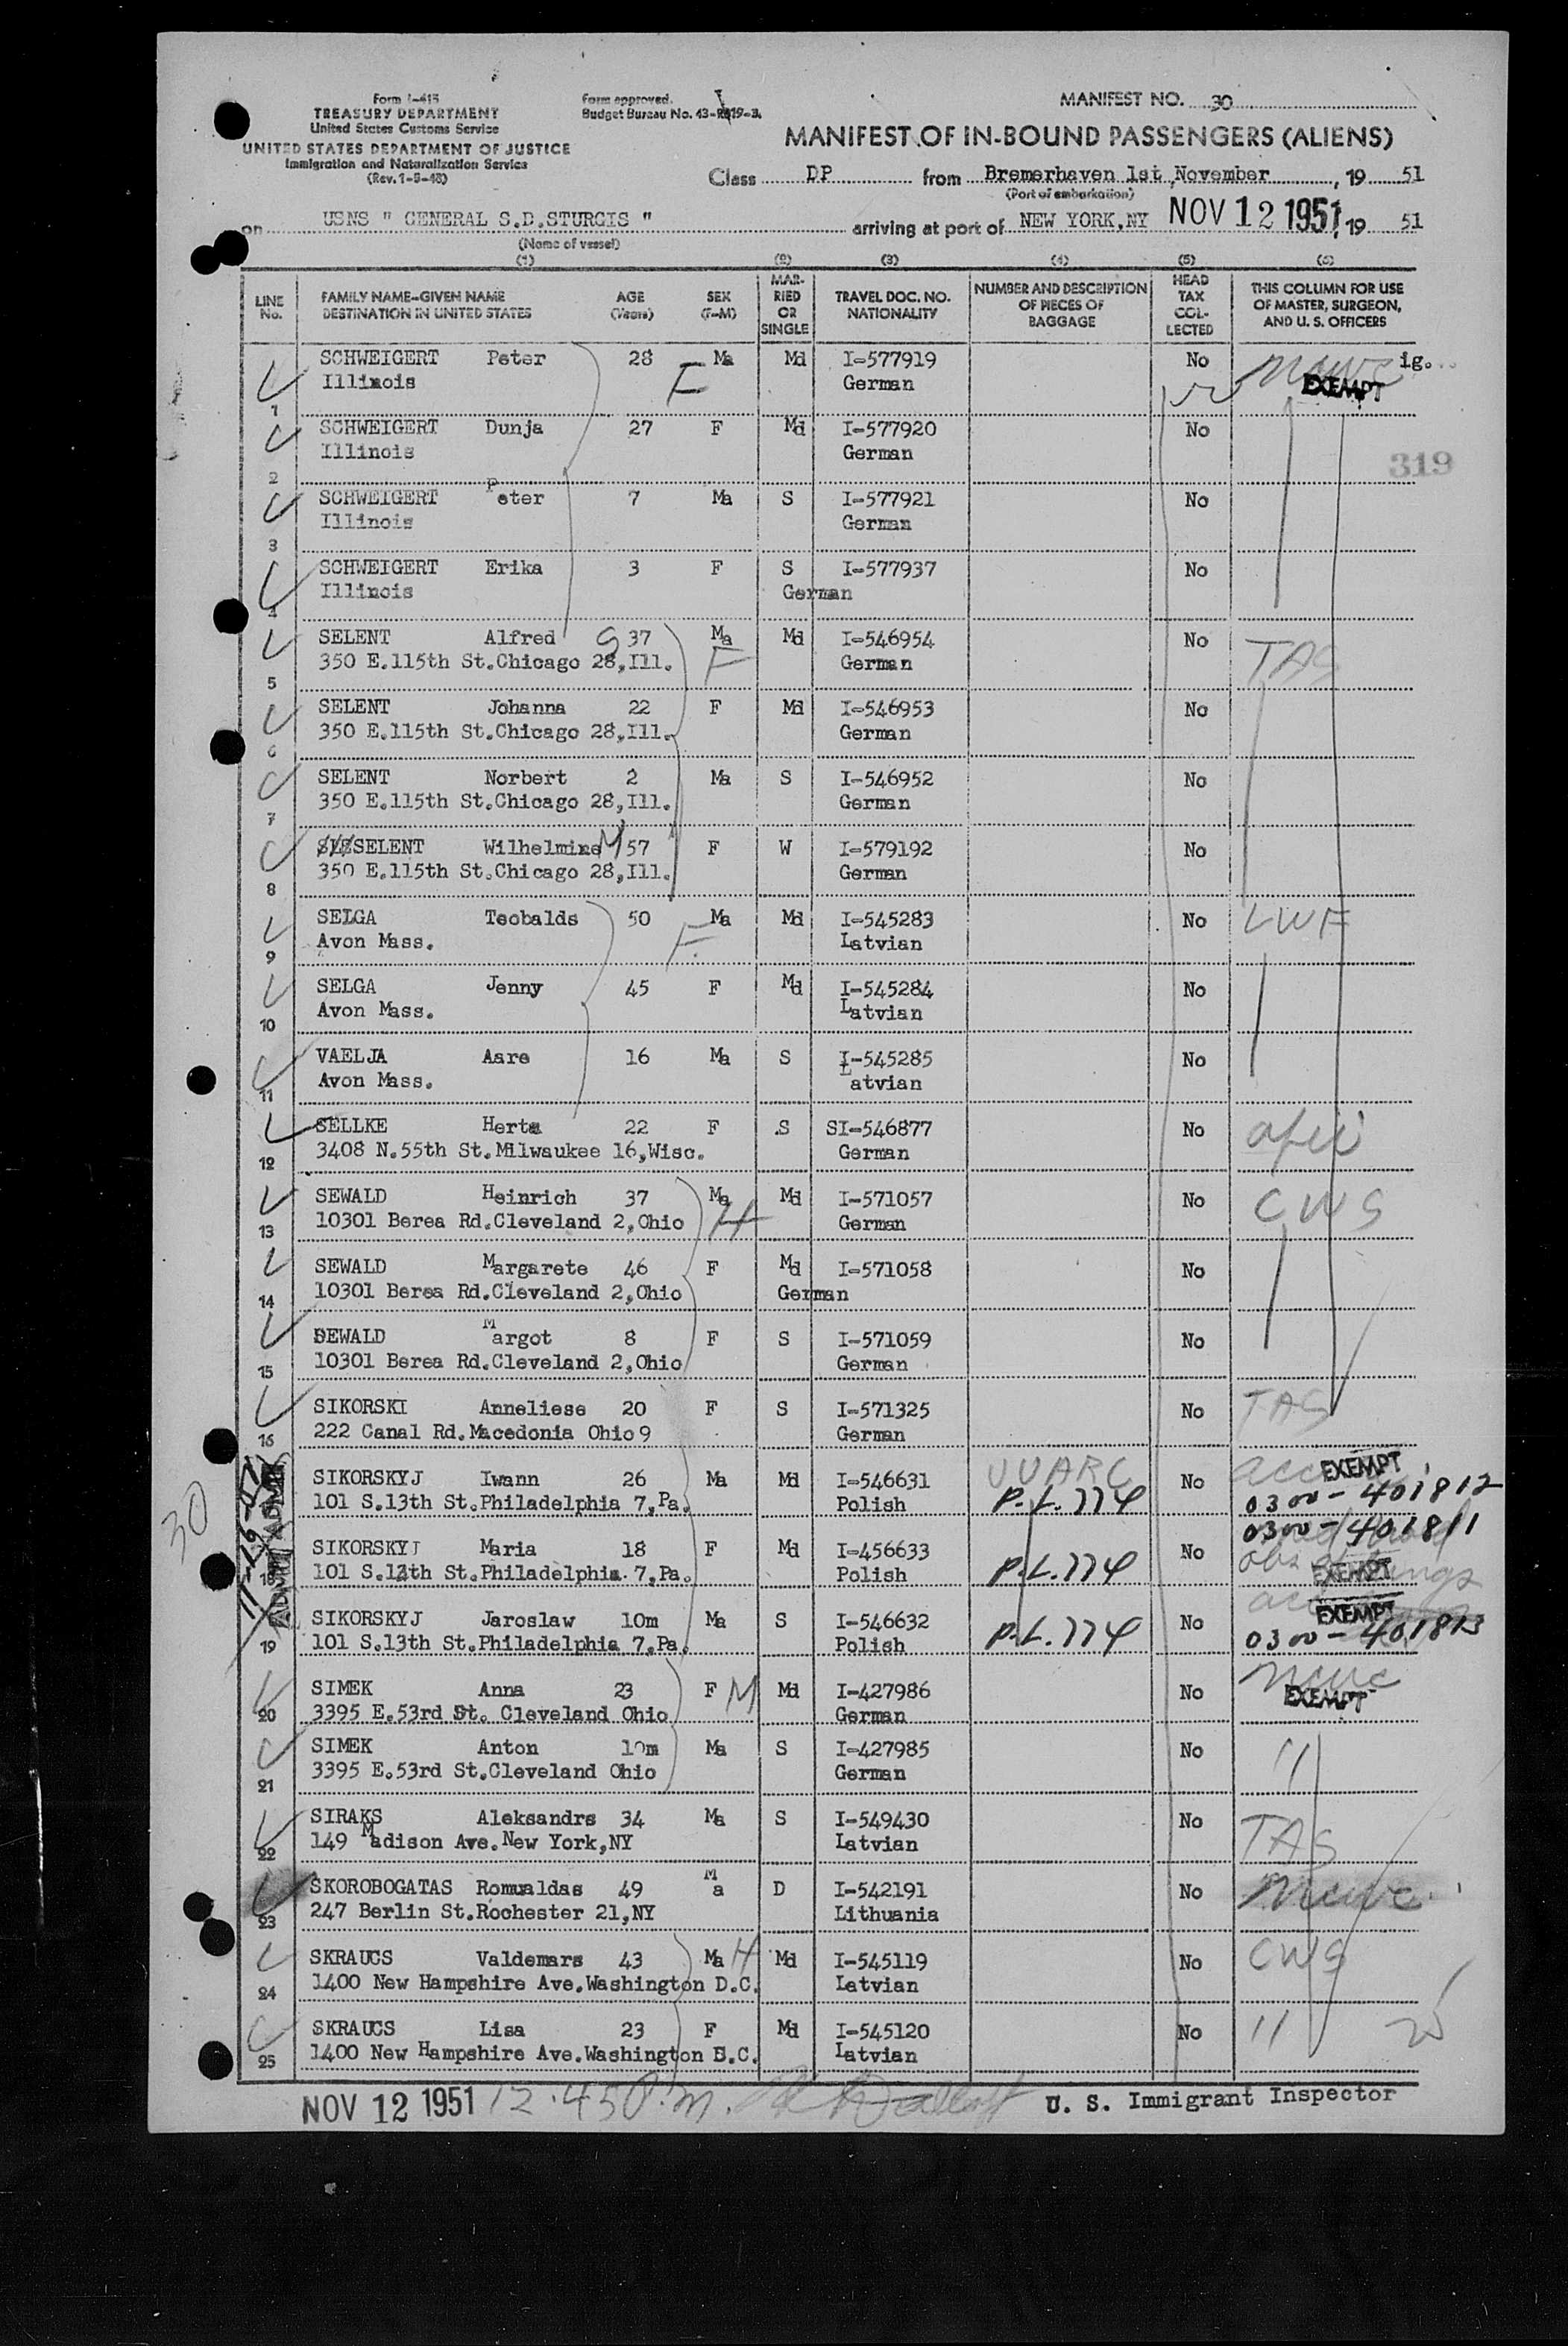 Form I-415
TREASURY DEPARTMENT
United States Customs Service
UNITED STATES DEPARTMENT OF JUSTICE
Immigration and Naturalization Service
(Rev. 1-5-48)
Form approved.
Budget Bureau No. 43-R019-3.
MANIFEST NO. 30
MANIFEST OF IN-BOUND PASSENGERS (ALIENS)
Class DP from Bremerhaven 1st November, 19 51
(Port of embarkation)
on USNS " GENERAL S.D.STURGIS " arriving at port of NEW YORK,NY NOV 12 1951, 19 51
(Name of vessel)
(1) (2) (3) (4) (5) (6)
LINE No. FAMILY NAME-GIVEN NAME DESTINATION IN UNITED STATES AGE (Years) SEX (F-M) MARRIED OR SINGLE TRAVEL DOC. NO. NATIONALITY NUMBER AND DESCRIPTION OF PIECES OF BAGGAGE HEAD TAX COLLECTED THIS COLUMN FOR USE OF MASTER, SURGEON, AND U. S. OFFICERS
SCHWEIGERT Peter 28 Ma Md I-577919 No ig.
1 Illinois F German EXEMPT
SCHWEIGERT Dunja 27 F Md I-577920 No
2 Illinois German 319
SCHWEIGERT Peter 7 Ma S I-577921 No
3 Illinois German
SCHWEIGERT Erika 3 F S I-577937 No
4 Illinois German
SELENT Alfred 37 Ma Md I-546954 No TAS
5 350 E.115th St.Chicago 28,Ill. F German
SELENT Johanna 22 F Md I-546953 No
6 350 E.115th St.Chicago 28,Ill. German
SELENT Norbert 2 Ma S I-546952 No
7 350 E.115th St.Chicago 28,Ill. German
SELENT Wilhelmine 57 F W I-579192 No
8 350 E.115th St.Chicago 28,Ill. German
SELGA Teobalds 50 Ma Md I-545283 No LWF
9 Avon Mass. F. Latvian
SELGA Jenny 45 F Md I-545284 No
10 Avon Mass. Latvian
VAELJA Aare 16 Ma S I-545285 No
11 Avon Mass. Latvian
SELLKE Herta 22 F .S SI-546877 No
12 3408 N.55th St.Milwaukee 16,Wisc. German
SEWALD Heinrich 37 Ma Md I-571057 No CWS
13 10301 Berea Rd.Cleveland 2,Ohio H German
SEWALD Margarete 46 F Md I-571058 No
14 10301 Berea Rd.Cleveland 2,Ohio German
SEWALD Margot 8 F S I-571059 No
15 10301 Berea Rd.Cleveland 2,Ohio German
SIKORSKI Anneliese 20 F S I-571325 No TAS
16 222 Canal Rd.Macedonia Ohio 9 German
SIKORSKYJ Iwann 26 Ma Md I-546631 UUARC No EXEMPT
101 S.13th St.Philadelphia 7,Pa. Polish P.L.774 0300-401812
SIKORSKYJ Maria 18 F Md I-456633 No 0300-401811
18 101 S.13th St.Philadelphia 7,Pa. Polish P.L.774 EXEMPT
SIKORSKYJ Jaroslaw 10m Ma S I-546632 No EXEMPT
19 101 S.13th St.Philadelphia 7,Pa. Polish P.L.774 0300-401813
30
SIMEK Anna 23 F M Md I-427986 No
20 3395 E.53rd St. Cleveland Ohio German EXEMPT
SIMEK Anton 10m Ma S I-427985 No "
21 3395 E.53rd St.Cleveland Ohio German
SIRAKS Aleksandrs 34 Ma S I-549430 No TAS
22 149 Madison Ave.New York,NY Latvian
SKOROBOGATAS Romualdas 49 Ma D I-542191 No
23 247 Berlin St.Rochester 21,NY Lithuania
SKRAUCS Valdemars 43 Ma H Md I-545119 No CWS
24 1400 New Hampshire Ave.Washington D.C. Latvian
SKRAUCS Lisa 23 F Md I-545120 No " 25
25 1400 New Hampshire Ave.Washington D.C. Latvian
NOV 12 1951 12.45 P.m. U. S. Immigrant Inspector